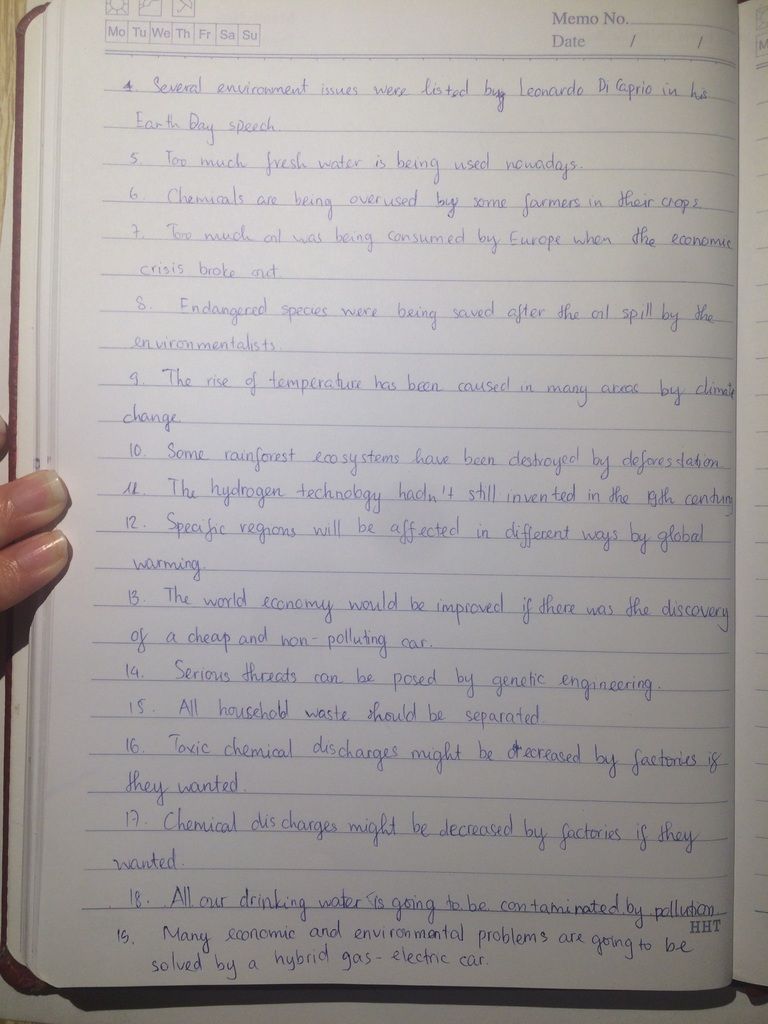 Mo Tu We Th Fr Sa Su
Memo No.
Date / /
4. Several environment issues were listed by Leonardo Di Caprio in his
Earth Day speech.
5. Too much fresh water is being used nowadays.
6. Chemicals are being overused by some farmers in their crops
7. Too much oil was being consumed by Europe when the economic
crisis broke out.
8. Endangered species were being saved after the oil spill by the
environmentalists.
9. The rise of temperature has been caused in many areas by climate
change.
10. Some rainforest ecosystems have been destroyed by deforestation
11. The hydrogen technology hadn't still invented in the 19th century
12. Specific regions will be affected in different ways by global
warming.
13. The world economy would be improved if there was the discovery
of a cheap and non-polluting car.
14. Serious threats can be posed by genetic engineering.
15. All household waste should be separated.
16. Toxic chemical discharges might be decreased by factories if
they wanted.
17. Chemical discharges might be decreased by factories if they
wanted.
18. All our drinking water is going to be contaminated by pollution.
HHT
19. Many economic and environmental problems are going to be
solved by a hybrid gas-electric car.